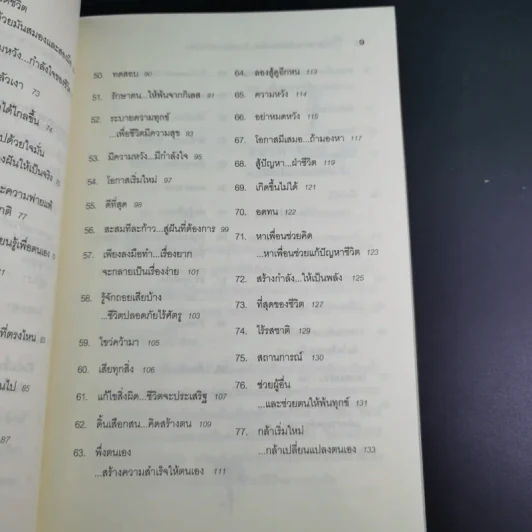 ชีวิต
73
74
85
87
9
50. ทดสอบ 90
51. รักษาตน...ให้พ้นจากกิเลส 91
52. ระบายความทุกข์
...เพื่อชีวิตมีความสุข 93
53. มีความหวัง...มีกำลังใจ 95
54. โอกาสเริ่มใหม่ 97
55. ดีที่สุด 98
56. สะสมทีละก้าว...สู่ฝันที่ต้องการ 99
57. เพียงลงมือทำ...เรื่องยาก
จะกลายเป็นเรื่องง่าย 101
58. รู้จักถอยเสียบ้าง
...ชีวิตปลอดภัยไร้ศัตรู 103
59. ไขว่คว้ามา 105
60. เสียทุกสิ่ง 106
61. แก้ไขสิ่งผิด...ชีวิตจะประเสริฐ 107
62. ดิ้นเสือกสน...คิดสร้างตน 109
63. พึ่งตนเอง
...สร้างความสำเร็จให้ตนเอง 111
64. ลองสู้ดูอีกหน 113
65. ความหวัง 114
66. อย่าหมดหวัง 115
67. โอกาสมีเสมอ...ถ้ามองหา 117
68. สู้ปัญหา...ฝ่าชีวิต 119
69. เกิดขึ้นไม่ได้ 121
70. อดทน 122
71. หาเพื่อนช่วยคิด
...หาเพื่อนช่วยแก้ปัญหาชีวิต 123
72. สร้างกำลัง...ให้เป็นพลัง 125
73. ที่สุดของชีวิต 127
74. ไร้รสชาติ 129
75. สถานการณ์ 130
76. ช่วยผู้อื่น
...และช่วยตนให้พ้นทุกข์ 131
77. กล้าเริ่มใหม่
...กล้าเปลี่ยนแปลงตนเอง 133